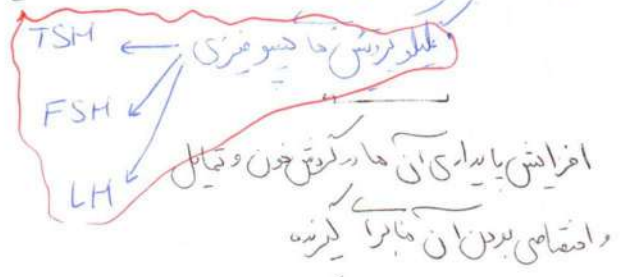 گلیکوپروتئین ها هیپوفیزی ← TSH
FSH
LH
افزایش پایداری آن ها در گردش خون و تمایل
و اختصاصی بودن آن ها برا گیرنده